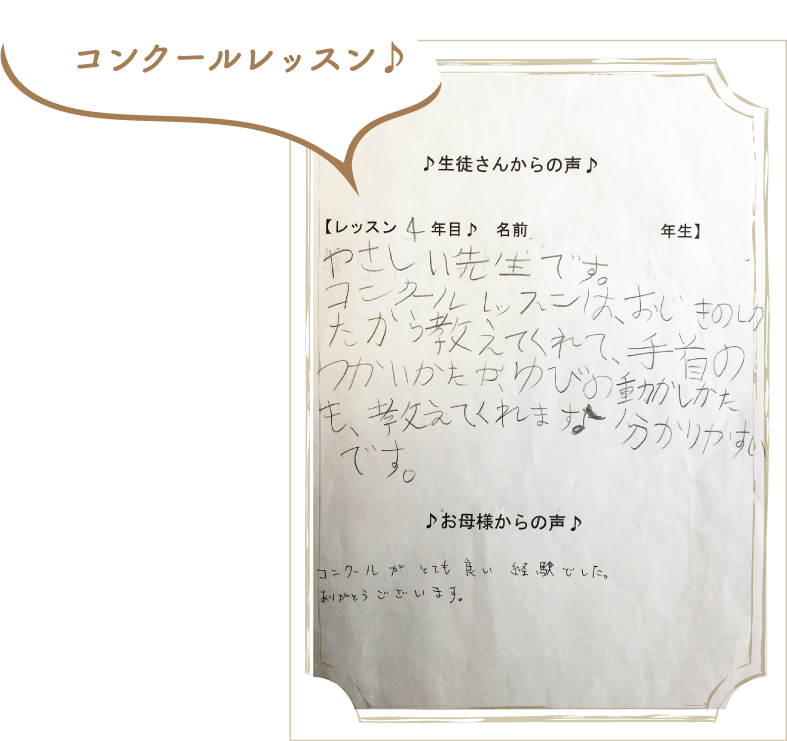 コンクールレッスン♪
♪生徒さんからの声♪
【レッスン 4 年目♪ 名前 年生】
やさしい先生です。
コンクールレッスンは、おじぎのし
たから教えてくれて、手首の
つかいかたや、ゆびの動かしかた
も、教えてくれます♪分かりやすい
です。
♪お母様からの声♪
コンクールが とても 良い 経験でした。
ありがとうございます。